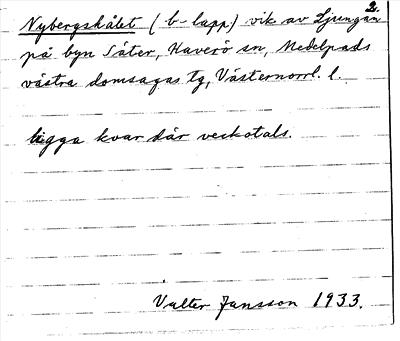 2.
Nybergshålet (b-lapp) vik av Ljungan
på byn Säter, Haverö sn, Medelpads
västra domsagas tg, Västernorrl. l.
ligga kvar där veckotals.
Valter Jansson 1933.